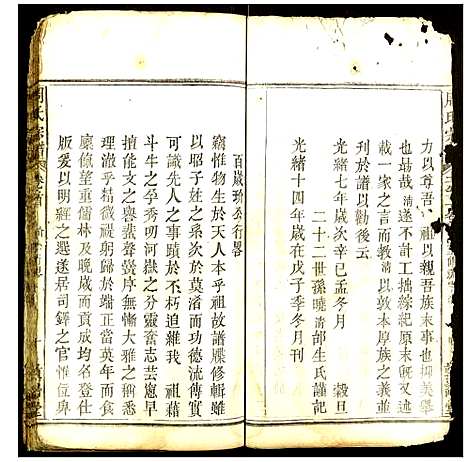 力以尊吾 祖以親吾族末事也抑美舉
也哉淸遂不計工拙緣紀原末旣又併
載一家之言而教淸以敦本厚族之義並
刊於譜以勸後云
光緒七年歲次辛巳孟冬月 穀旦
二十二世孫曉淸邰生氏謹記
光緒十四年歲在戊子季冬月刊
百歲 公行畧
竊惟物生於天人本乎祖故譜牒修輯雖
以昭子姓之系次於莫淆而功德流傳實
可識先人之事蹟於不朽追維我 祖藉
斗牛之孕秀叨河嶽之分靈奮志芸窻早
擅能文之譽蜚聲黌序無慚大雅之稱然
理澈乎精微視躬歸於端正當食餼
廩僚望重儒林及晩歲而貢成均名登仕
版爰以明經之選遂居司鐸之官惟位卑
周氏宗譜 卷首